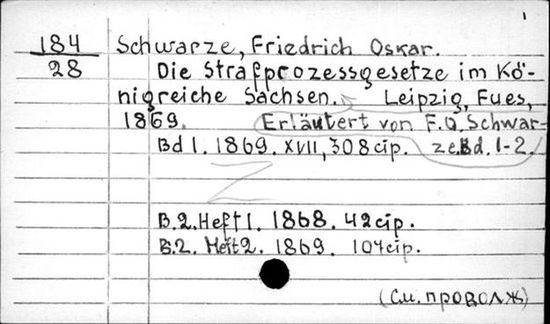 1
184 Schwarze, Friedrich Oskar.
28 Die Strafprozessgesetze im Kö-
nigreiche Sachsen. Leipzig, Fues,
1869. Erläutert von F.O. Schwar-
Bd 1. 1869. XVII, 308 cip. ze. Bd. 1-2.
B.2. Heft 1. 1868. 42 cip.
B.2. Heft 2. 1869. 104 cip.
(См. продолж)